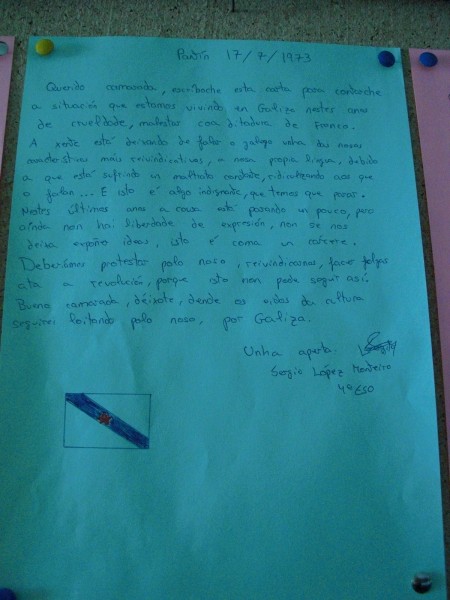 Pantín 17/7/1973
Querido camarada, escríboche esta carta para contarche
a situación que estamos vivindo en Galiza nestes anos
de crueldade, malestar coa ditadura de Franco.
A xente está deixando de falar o galego unha das nosas
mostras máis reivindicativas, a nosa propia lingua, debido
a que está sufrindo un maltrato constante, ridiculizando aos que
o falan... E isto é algo indignante, que temos que parar.
Nestes últimos anos a cousa está pasando un pouco, pero
aínda non hai liberdade de expresión, non se nos
deixa expoñer ideas, isto é coma un cárcere.
Deberíamos protestar polo noso, reivindicarnos, facer folgas
ata a revolución, porque isto non pode seguir así.
Bueno camarada, déixote, dende os eidos da cultura
seguirei loitando polo noso, por Galiza.
Unha aperta.
Sergio López Monteiro
4º ESO